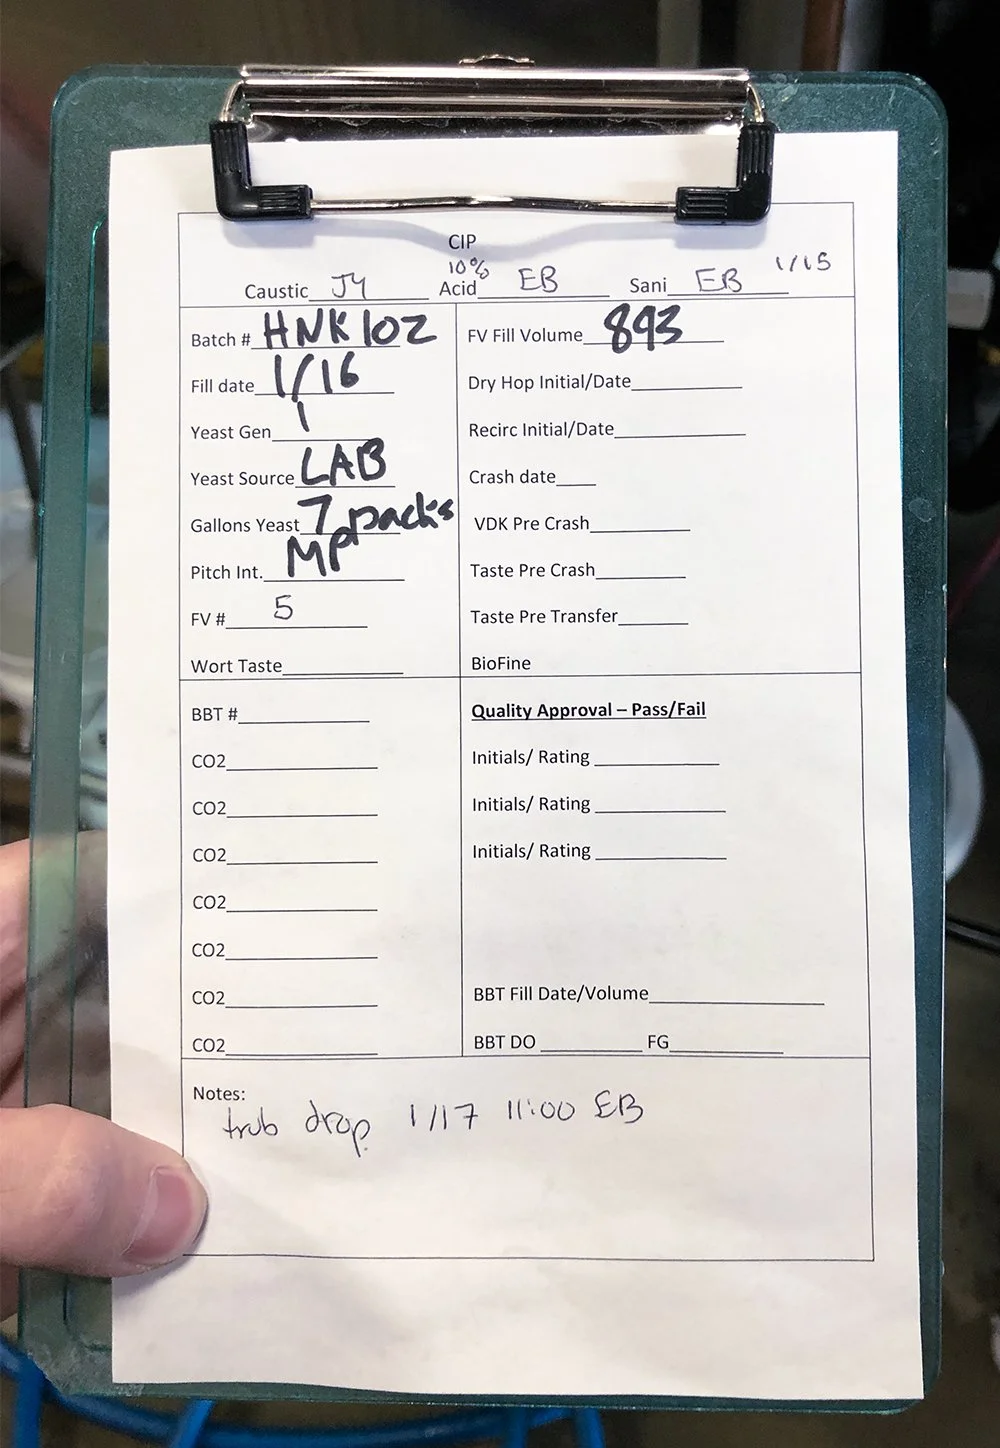 CIP
10%
Caustic JY Acid EB Sani EB 1/15
Batch # HNK102
Fill date 1/16
Yeast Gen 1
Yeast Source LAB
Gallons Yeast 7 packs
Pitch Int. MP
FV # 5
Wort Taste
FV Fill Volume 893
Dry Hop Initial/Date
Recirc Initial/Date
Crash date
VDK Pre Crash
Taste Pre Crash
Taste Pre Transfer
BioFine
BBT #
CO2
CO2
CO2
CO2
CO2
CO2
CO2
Quality Approval – Pass/Fail
Initials/ Rating
Initials/ Rating
Initials/ Rating
BBT Fill Date/Volume
BBT DO FG
Notes:
trub drop 1/17 11:00 EB